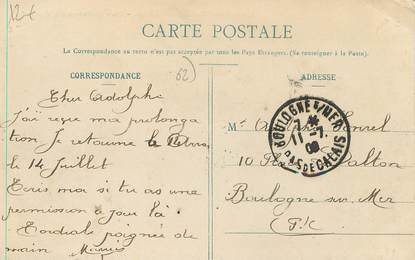 12 €
CARTE POSTALE
La Correspondance au recto n'est pas acceptée par tous les Pays Etrangers. (Se renseigner à la Poste).
CORRESPONDANCE
62
ADRESSE
Cher Adolphe
J'ai reçu ma prolonga
tion Je retourne le
le 14 Juillet
Ecris moi si tu as une
permission à jour là
Cordiale poignée de
main
BOULOGNE S/MER
7
11 -7
PAS DE CALAIS
M.
10
Boulogne sur Mer
P.C